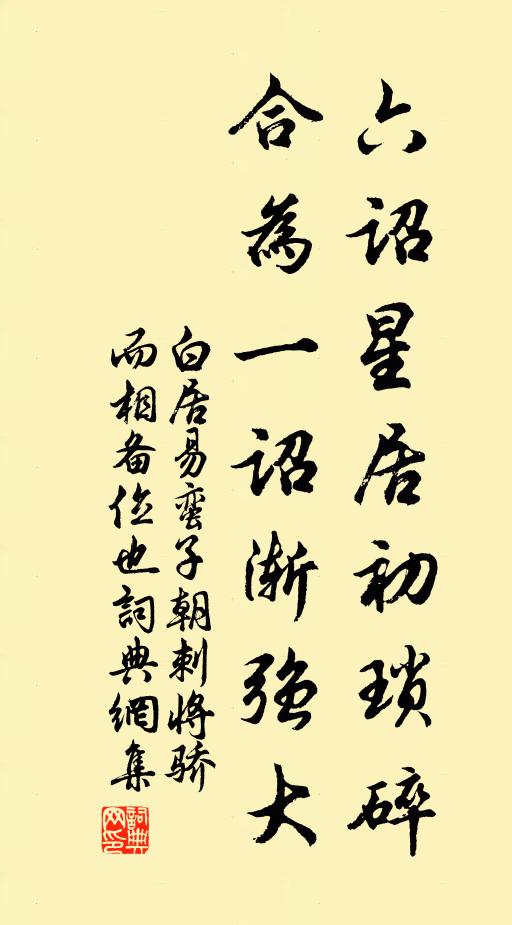 六詔星居初瑣碎
合為一詔漸強大
白居易蛮子朝刺将骄
而相备位也詞典網集
詞典
网印